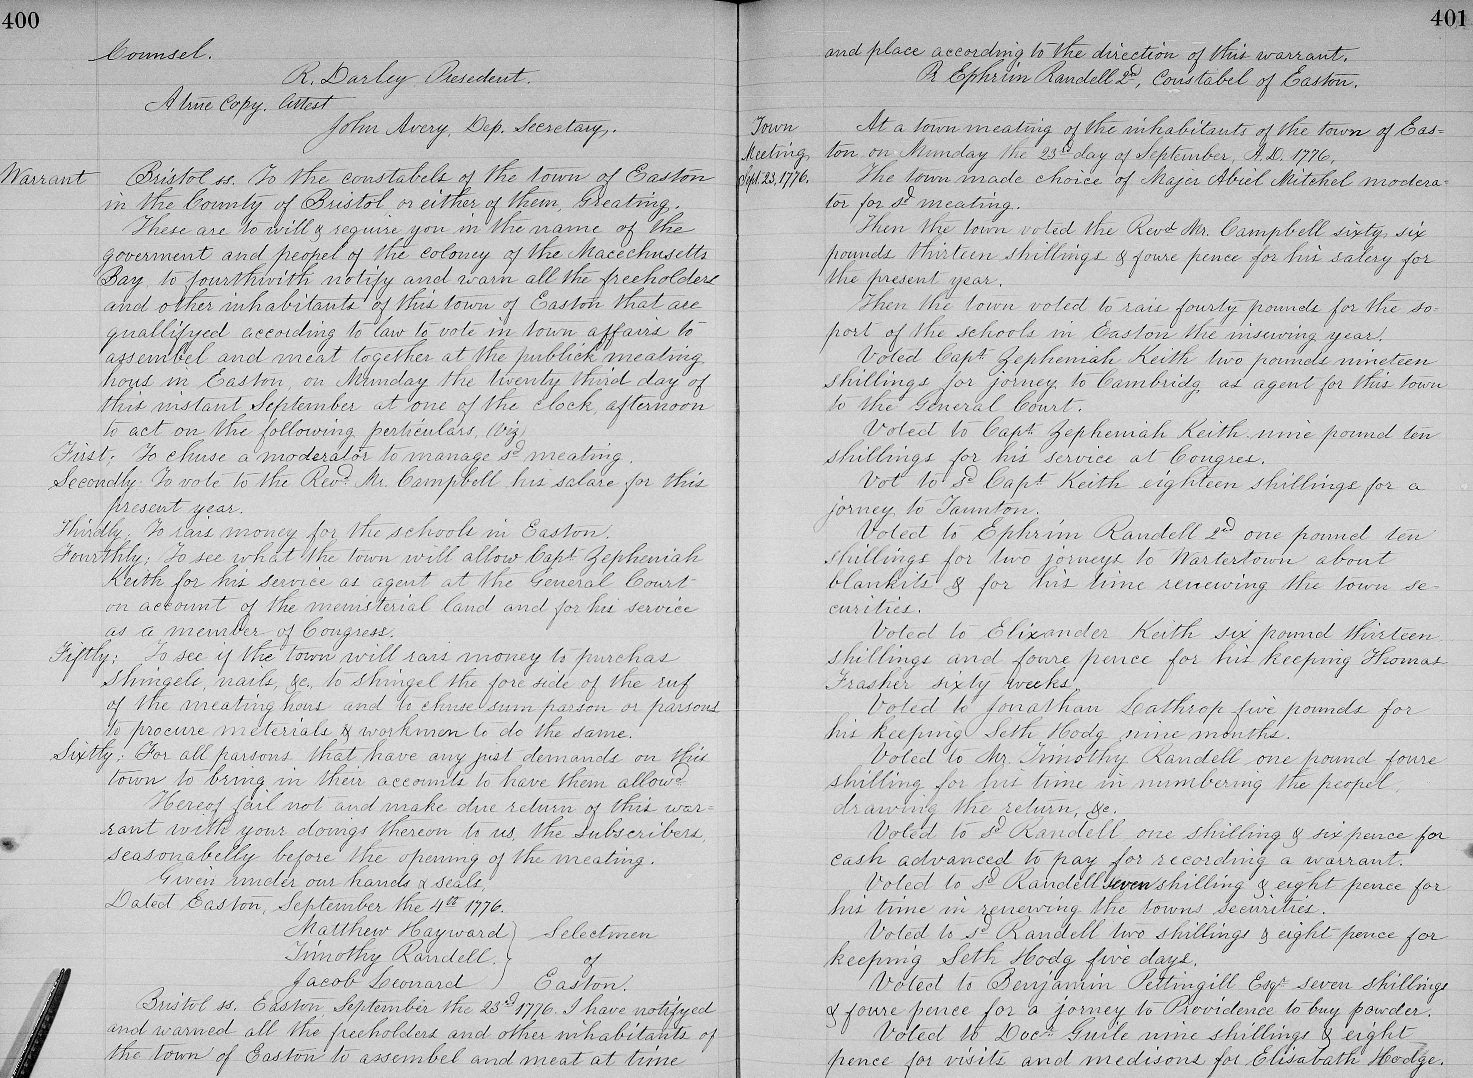 400
Counsel.
R. Darley Presedent.
A true Copy. Attest
John Avery, Dep. Secretary.
Warrant
Bristol ss. To the constabels of the town of Easton
in the County of Bristol or either of them, Greating.
These are to will & require you in the name of the
goverment and peopel of the coloney of the Macechusetts
Bay to fourthwith notify and warn all the freeholders
and other inhabitants of this town of Easton that are
quallifyed according to law to vote in town affairs to
assembel and meat together at the publick meating
hous in Easton, on Munday the twenty third day of
this instant September at one of the clock, afternoon
to act on the following perticulars, (viz)
First; To chuse a moderator to manage sd meating.
Secondly. To vote to the Revd. Mr. Campbell his salare for this
present year.
Thirdly; To rais money for the schools in Easton.
Fourthly; To see what the town will allow Capt. Zepheniah
Keith for his service as agent at the General Court
on account of the menisterial land and for his service
as a member of Congress.
Fiftly; To see if the town will rais money to purchas
shingels, nails, &c., to shingel the fore side of the ruf
of the meating hous and to chuse sum parson or parsons
to procure meterials & workmen to do the same.
Sixtly; For all parsons that have any just demands on this
town to bring in their accounts to have them allowd.
Hereof fail not and make due return of this war=
rant with your doings thereon to us, the subscribers,
seasonabelly before the opening of the meating.
Given under our hands & seals,
Dated Easton, September the 4th 1776.
Matthew Hayward } Selectmen
Timothy Randell. } of
Jacob Leonard } Easton.
Bristol ss. Easton September the 23rd 1776. I have notifyed
and warned all the freeholders and other inhabitants of
the town of Easton to assembel and meat at time
401
and place according to the direction of this warrant.
Pr Ephrim Randell 2d, Constabel of Easton.
Town
Meeting
Sept. 23, 1776.
At a town meating of the inhabitants of the town of Eas=
ton on Munday the 23rd day of September, A.D. 1776,
The town made choice of Majer Abiel Mitchel modera=
tor for sd meating.
Then the town voted the Revd Mr. Campbell sixty six
pounds thirteen shillings & foure pence for his salery for
the present year.
Then the town voted to rais fourty pounds for the so=
port of the schools in Easton the insewing year.
Voted Capt. Zepheniah Keith two pounds nineteen
shillings for jorney to Cambridg as agent for this town
to the General Court.
Voted to Capt. Zepheniah Keith nine pound ten
shillings for his service at Congres.
Vot to sd Capt Keith eighteen shillings for a
jorney to Taunton.
Voted to Ephrim Randell 2nd one pound ten
shillings for two jorneys to Wartertown about
blankits & for his time renewing the town se=
curities.
Voted to Elixander Keith six pound thirteen
shillings and foure pence for his keeping Thomas
Frasher sixty weeks.
Voted to Jonathan Lathrop five pounds for
his keeping Seth Hodg nine months.
Voted to Mr. Timothy Randell one pound foure
shilling for his time in numbering the peopel,
drawing the return, &c.
Voted to sd Randell one shilling & six pence for
cash advanced to pay for recording a warrant.
Voted to sd Randell seven shilling & eight pence for
his time in renewing the towns securities.
Voted to sd Randell two shillings & eight pence for
keeping Seth Hodg five days.
Voted to Benjamin Pettingill Esqr. seven shillings
& foure pence for a jorney to Providence to buy powder.
Voted to Docr. Guile nine shillings & eight
pence for visits and medisons for Elisabath Hodge.